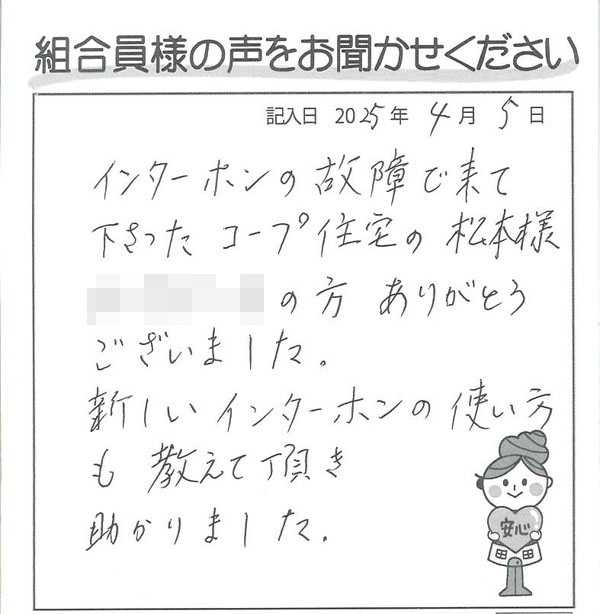 組合員様の声をお聞かせください
記入日 2025年 4月 5日
インターホンの故障で来て
下さった コープ住宅の 松本様
の方 ありがとう
ございました。
新しいインターホンの使い方
も 教えて頂き
助かりました。
安心